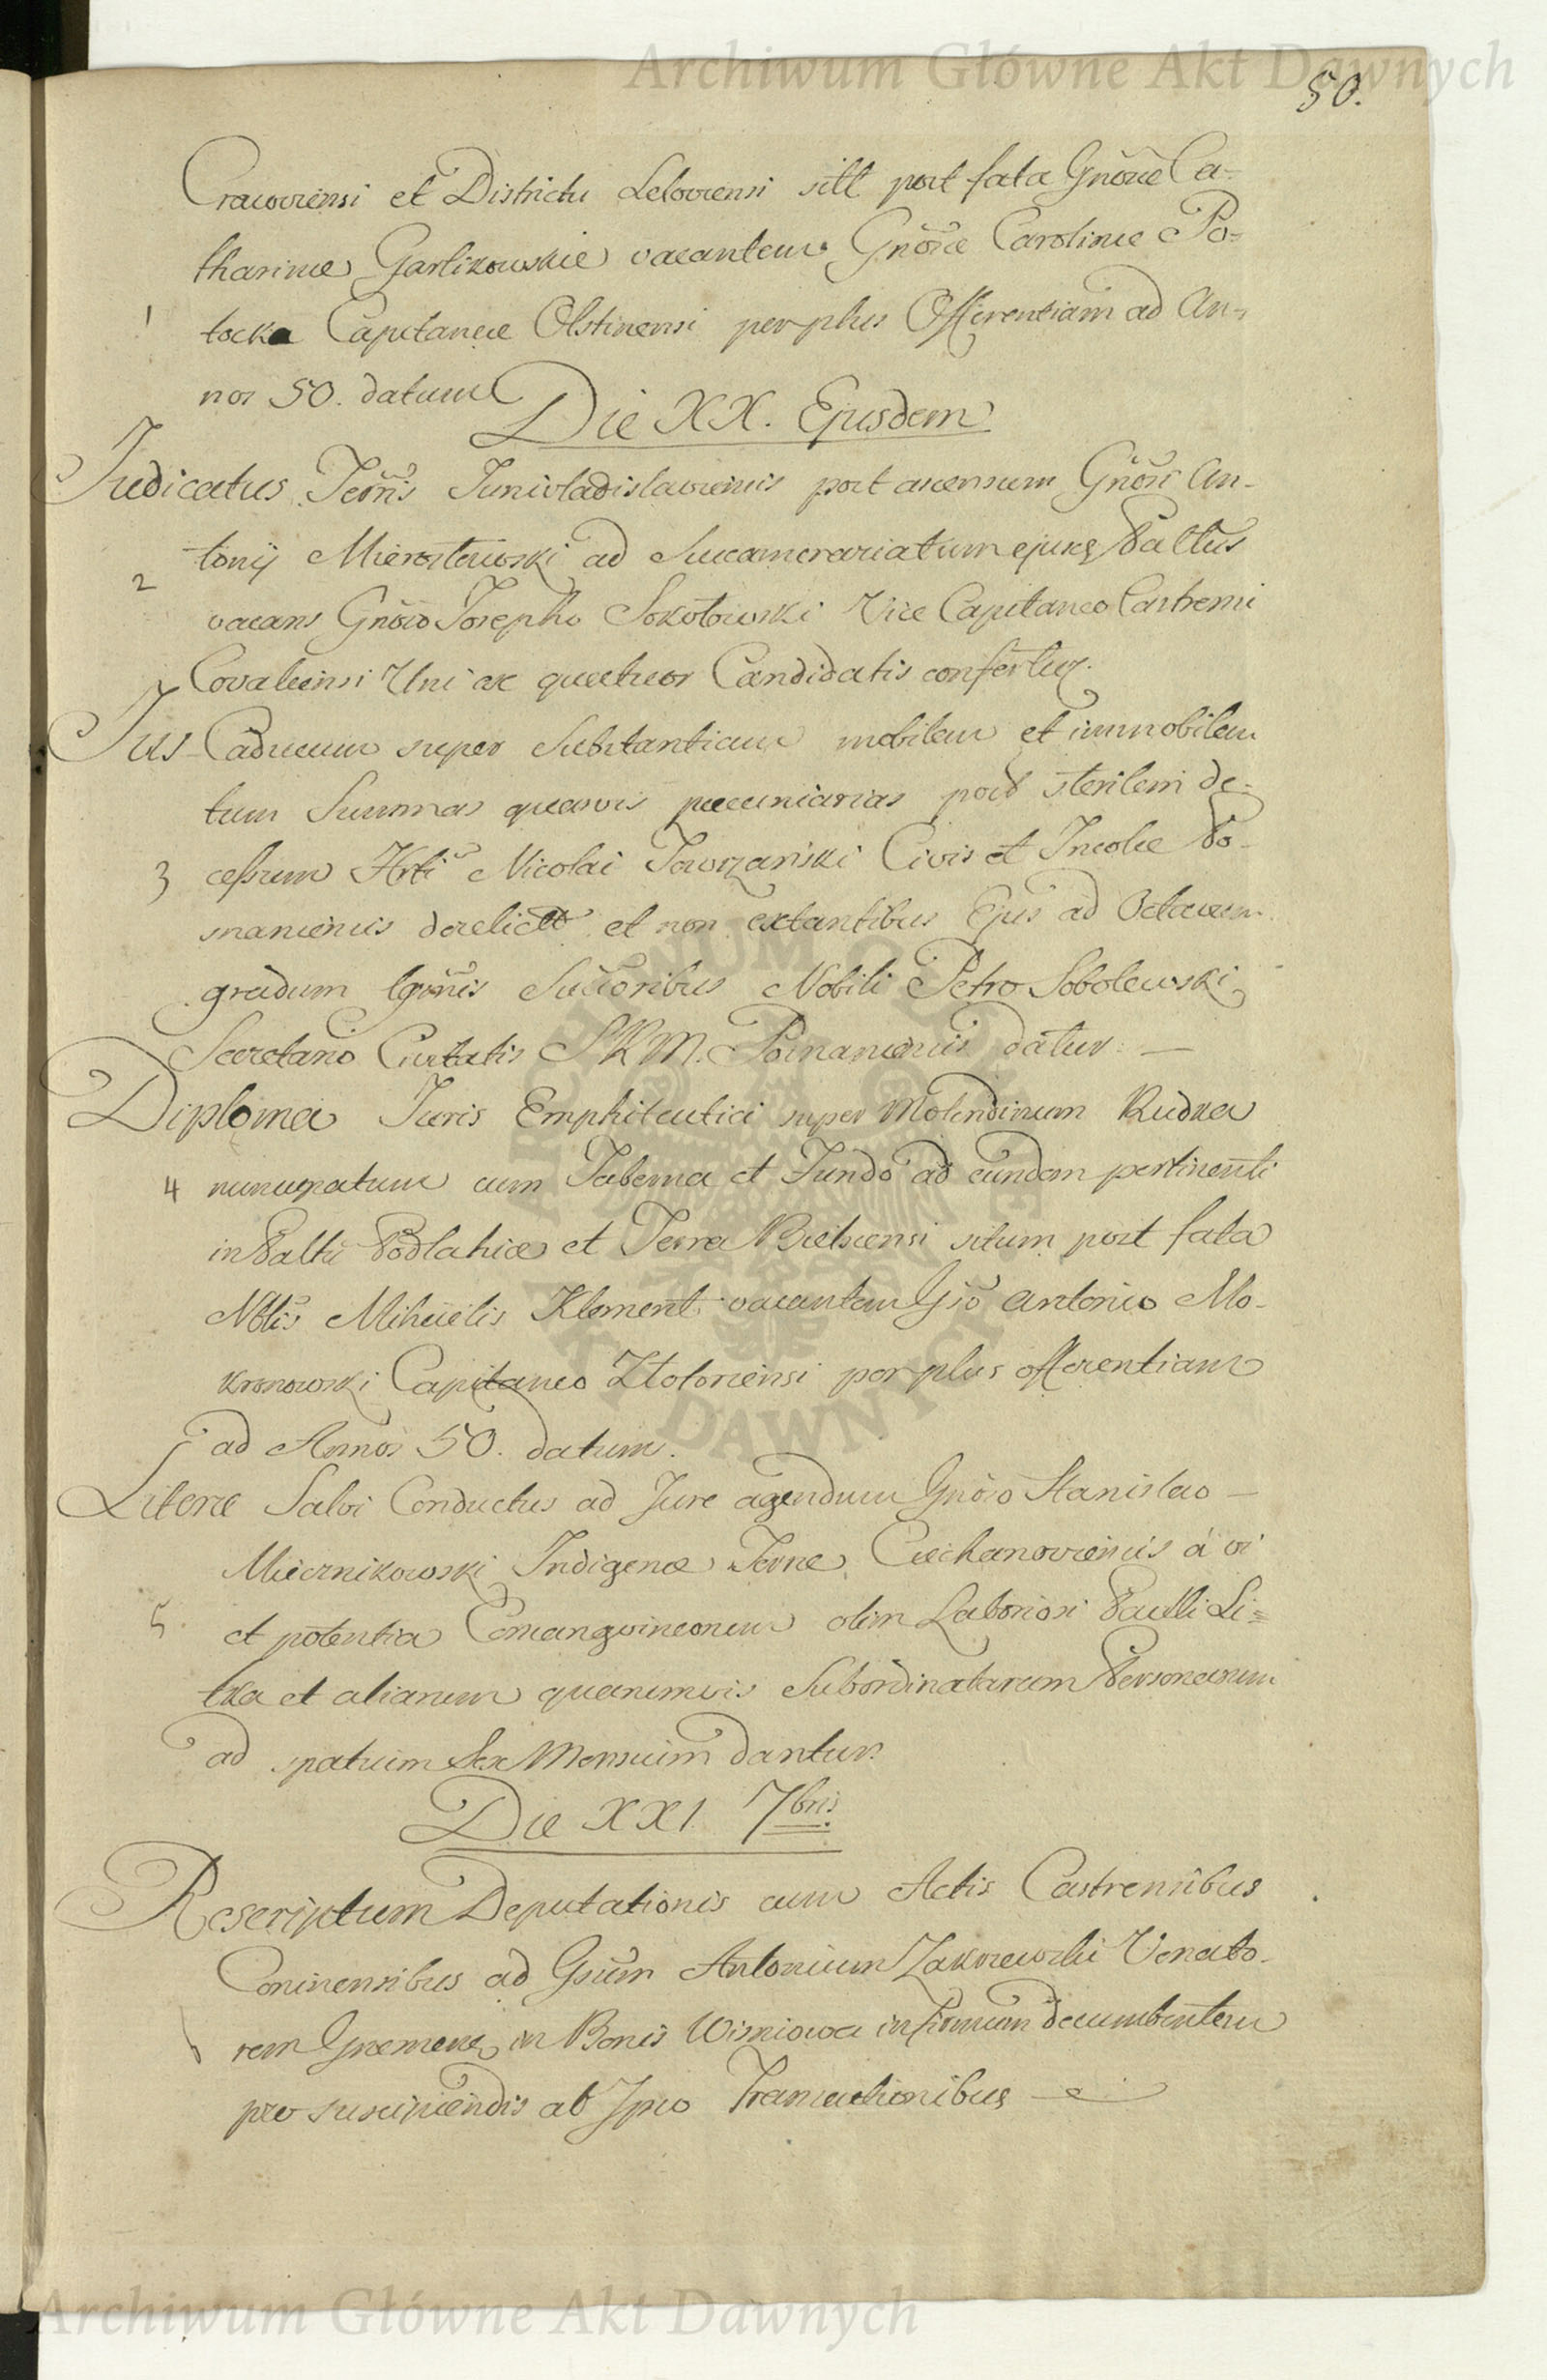 Archiwum Główne Akt Dawnych
50.
Cracoviensi et Districtu Leloviensi sitt post fata Gnosae Ca-
tharinae Garlikowskie vacantem Gnosae Carolinae Po-
1 tocka Capitaneae Olstinensi per plus Offerentiam ad An-
nos 50. datum
Die XX. Ejusdem
Judicatus Terris Junivladislaviensis post ascensum Gnosi An-
tonij Mierosławski ad Succamerariatum ejusq Paltus
2 vacans Gnoso Josepho Sokołowski Vice Capitaneo Castrensi
Covaliensi Uni ex quatuor Candidatis confertur.
Jus Caducum super Substantiam mobilem et immobilem
tum Summas quasvis pecuniarias post sterilem de-
3 cessum Hrti Nicolai Jaworzański Civis et Incolae Po-
snaniensis derelictt et non extantibus Ejus ad Octavum
gradum lgmis Succoribus Nobili Petro Sobolewski
Secretario Civitatis SRM. Posnaniensis datur. —
Diploma Juris Emphiteutici super Molendinum Rudka
4 nuncupatum cum Taberna et Fundo ad eundem pertinenti
in Paltu Podlahiae et Terra Bielscensi situm post fata
Nblis Mihaelis Klement vacantem Gso Antonio Mo-
kronowski Capitaneo Ztotoriensi per plus offerentiam
ad Annos 50. datum.
Literae Salvi Conductus ad Jure agendum Gnoso Stanislao —
Miecznikowski Indigenae Terrae Ciechanoviensis á vi
5 et potentia Consangvineorum olim Laboriosi Paulli Li=
tka et aliarum quarumvis Subordinatarum Personarum
ad spatium Sex Mensium dantur.
Die XXI 7bris.
Rescriptum Deputationis cum Actis Castrensibus
Coninensibus ad Gsum Antonium Zakrzewski Venato-
rem Gnemene in Bonis Wisniowa infirmum decumbentem
pro suscipiendis ab Ipso Transactionibus
Archiwum Główne Akt Dawnych
ARCHIWUM GŁÓWNE AKT DAWNYCH